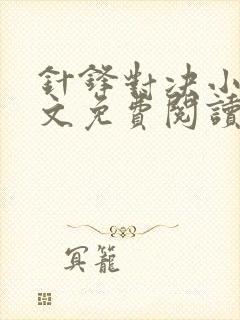 針鋒對決小
文免費閱讀
冥籠